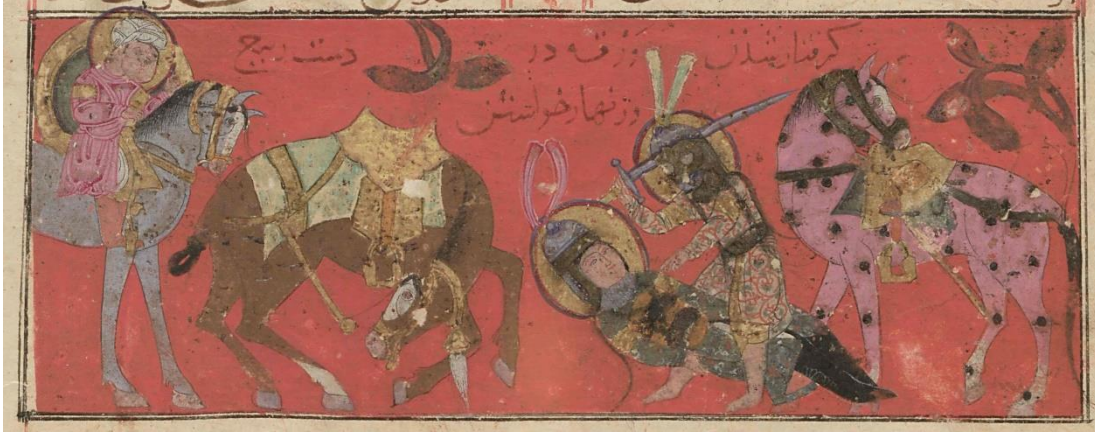 کرفتار شدن ورقه در دست ربیع
وزنهار خواستن